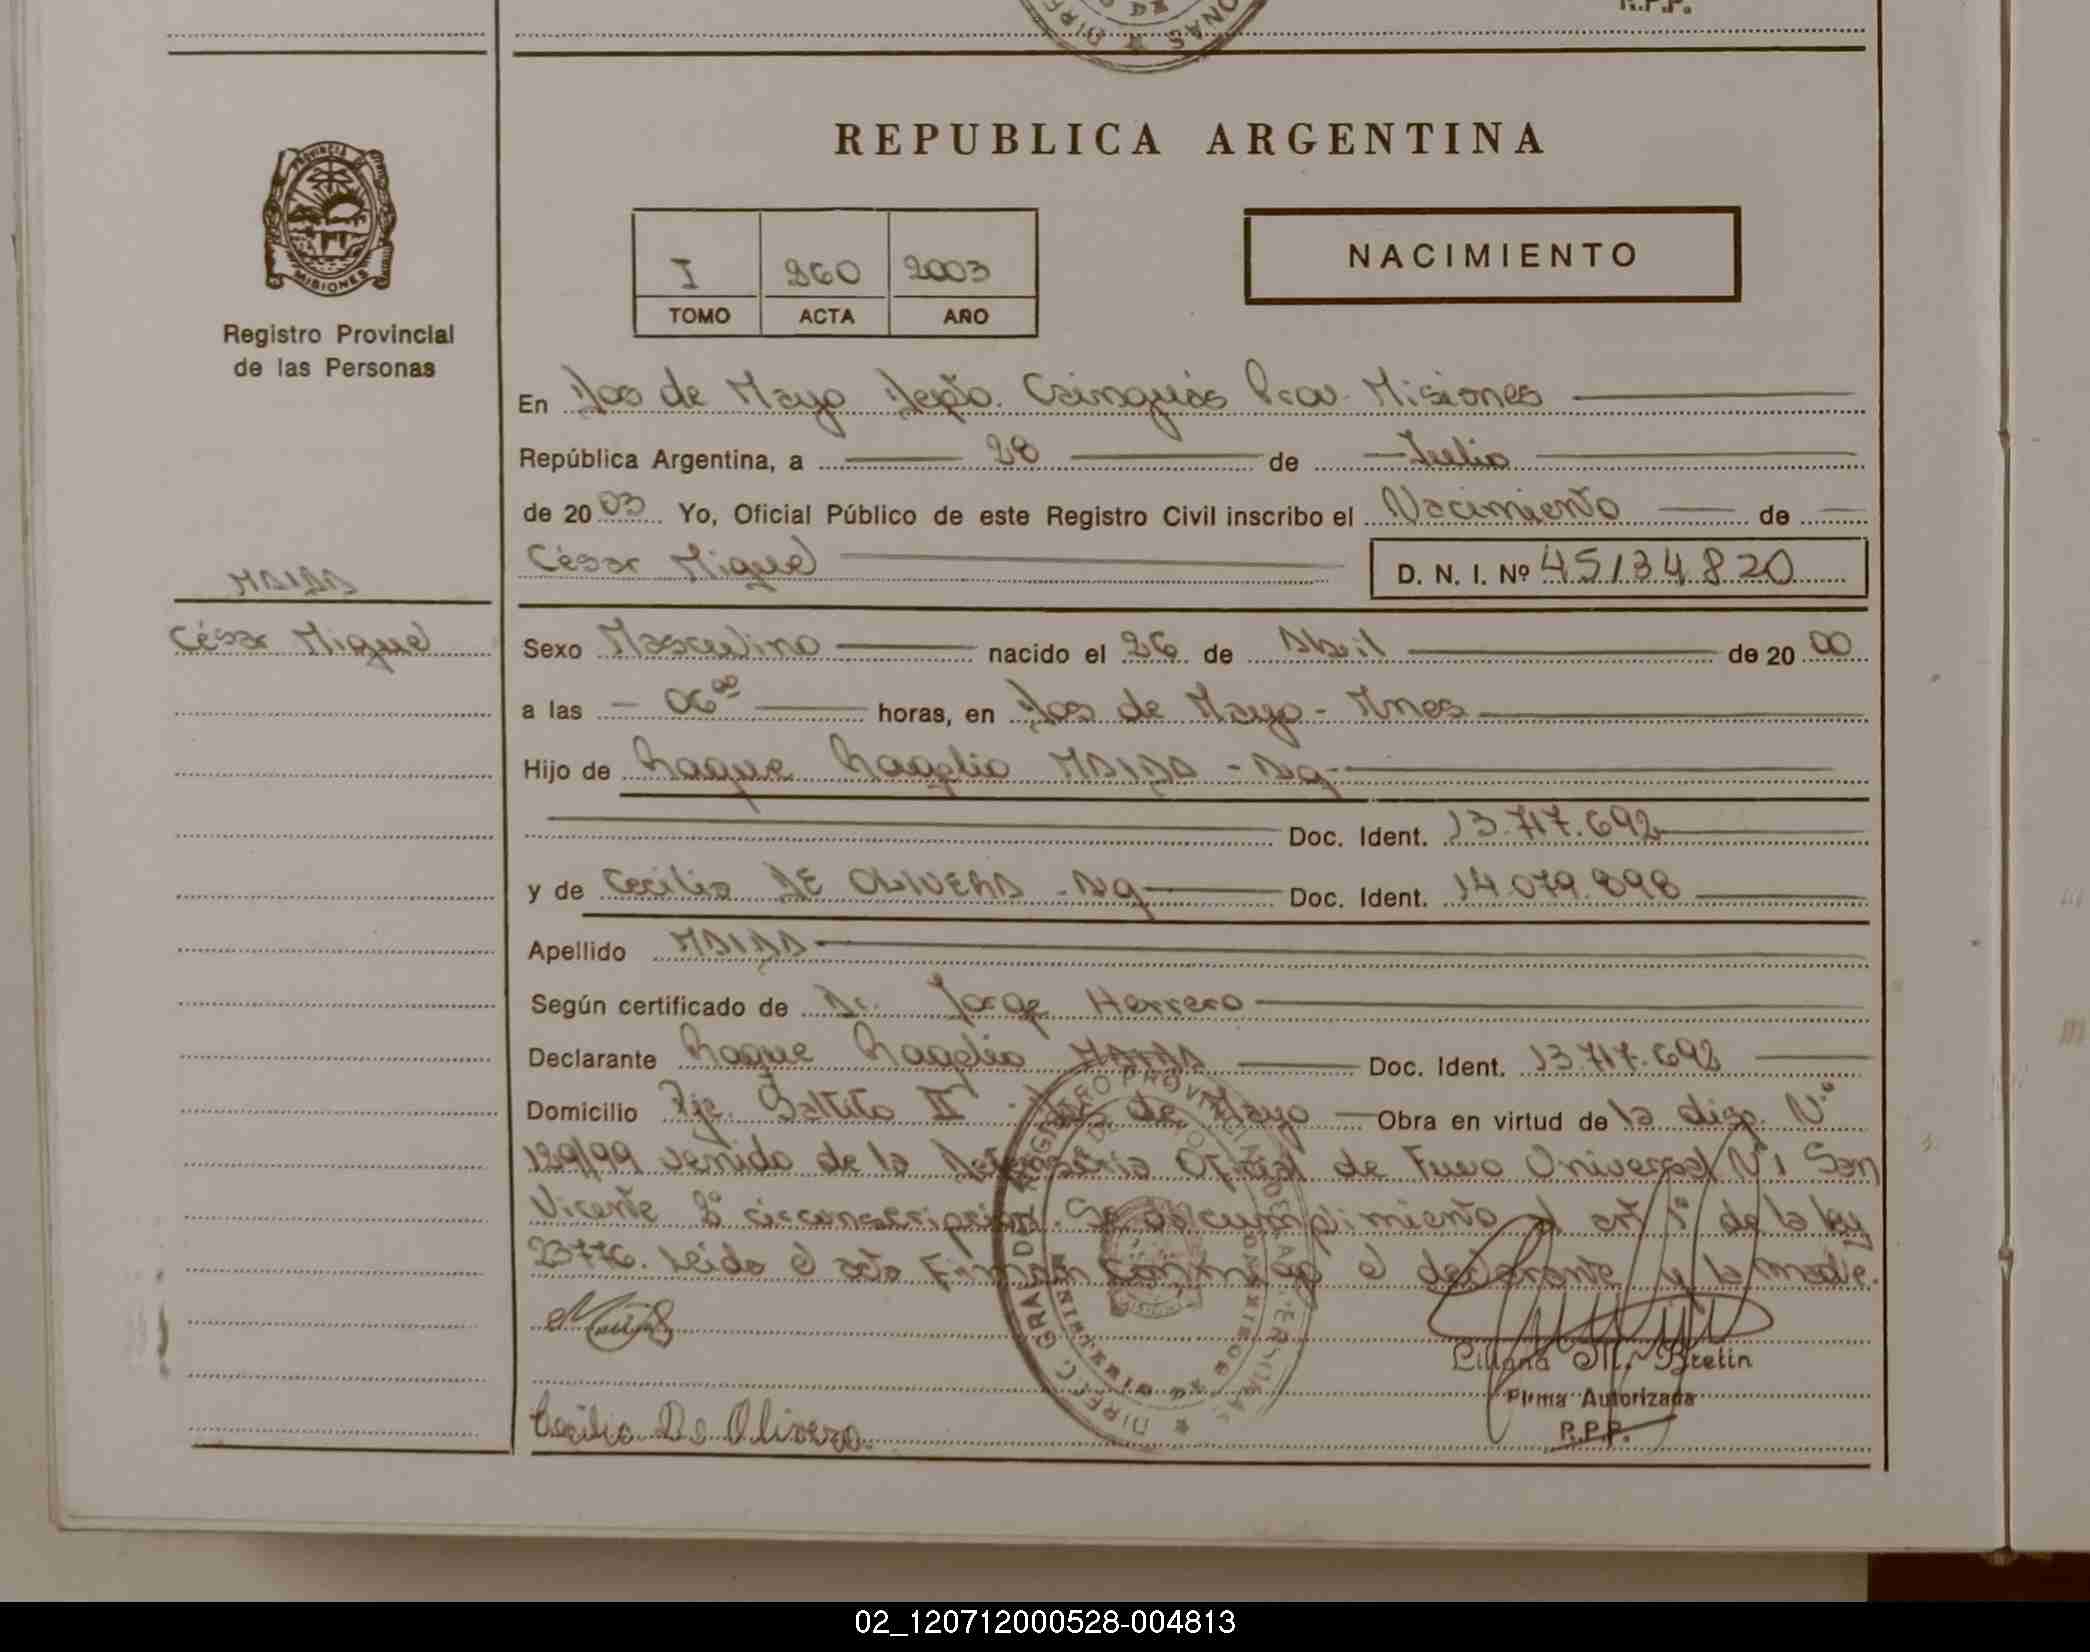 R.P.P.
REPUBLICA ARGENTINA
PROVINCIA DE MISIONES
Registro Provincial
de las Personas
I 260 2003
TOMO ACTA AÑO
NACIMIENTO
En Dos de Mayo Depto. Cainguás Prov. Misiones
República Argentina, a 28 de Julio
de 2003 Yo, Oficial Público de este Registro Civil inscribo el Nacimiento de
César Miguel D. N. I. Nº 45134820
César Miguel
Sexo Masculino nacido el 26 de Abril de 2000
a las 06⁰⁰ horas, en Dos de Mayo - Mnes
Hijo de Roque Rogelio - Arg
Doc. Ident. 13.717.692
y de Cecilia DE OLIVERA - Arg Doc. Ident. 14.079.898
Apellido
Según certificado de Dr. Jorge Herrero
Declarante Roque Rogelio Doc. Ident. 13.717.692
Domicilio II - Dos de Mayo Obra en virtud de la disp. Nº
129/99 de la Defensoria Oficial de Fuero Universal Nº 1 San
Vicente 2º circunscripción. Se da cumplimiento al art 1º de la ley
23776. Leida el acta Firman conmigo el declarante y la madre.
Liliana M. Bretin
Firma Autorizada
R.P.P.
Cecilia De Olivera
02_120712000528-004813